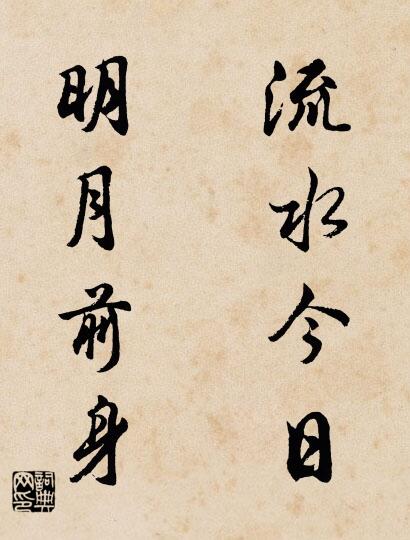 流水今日
明月前身
詞典网印